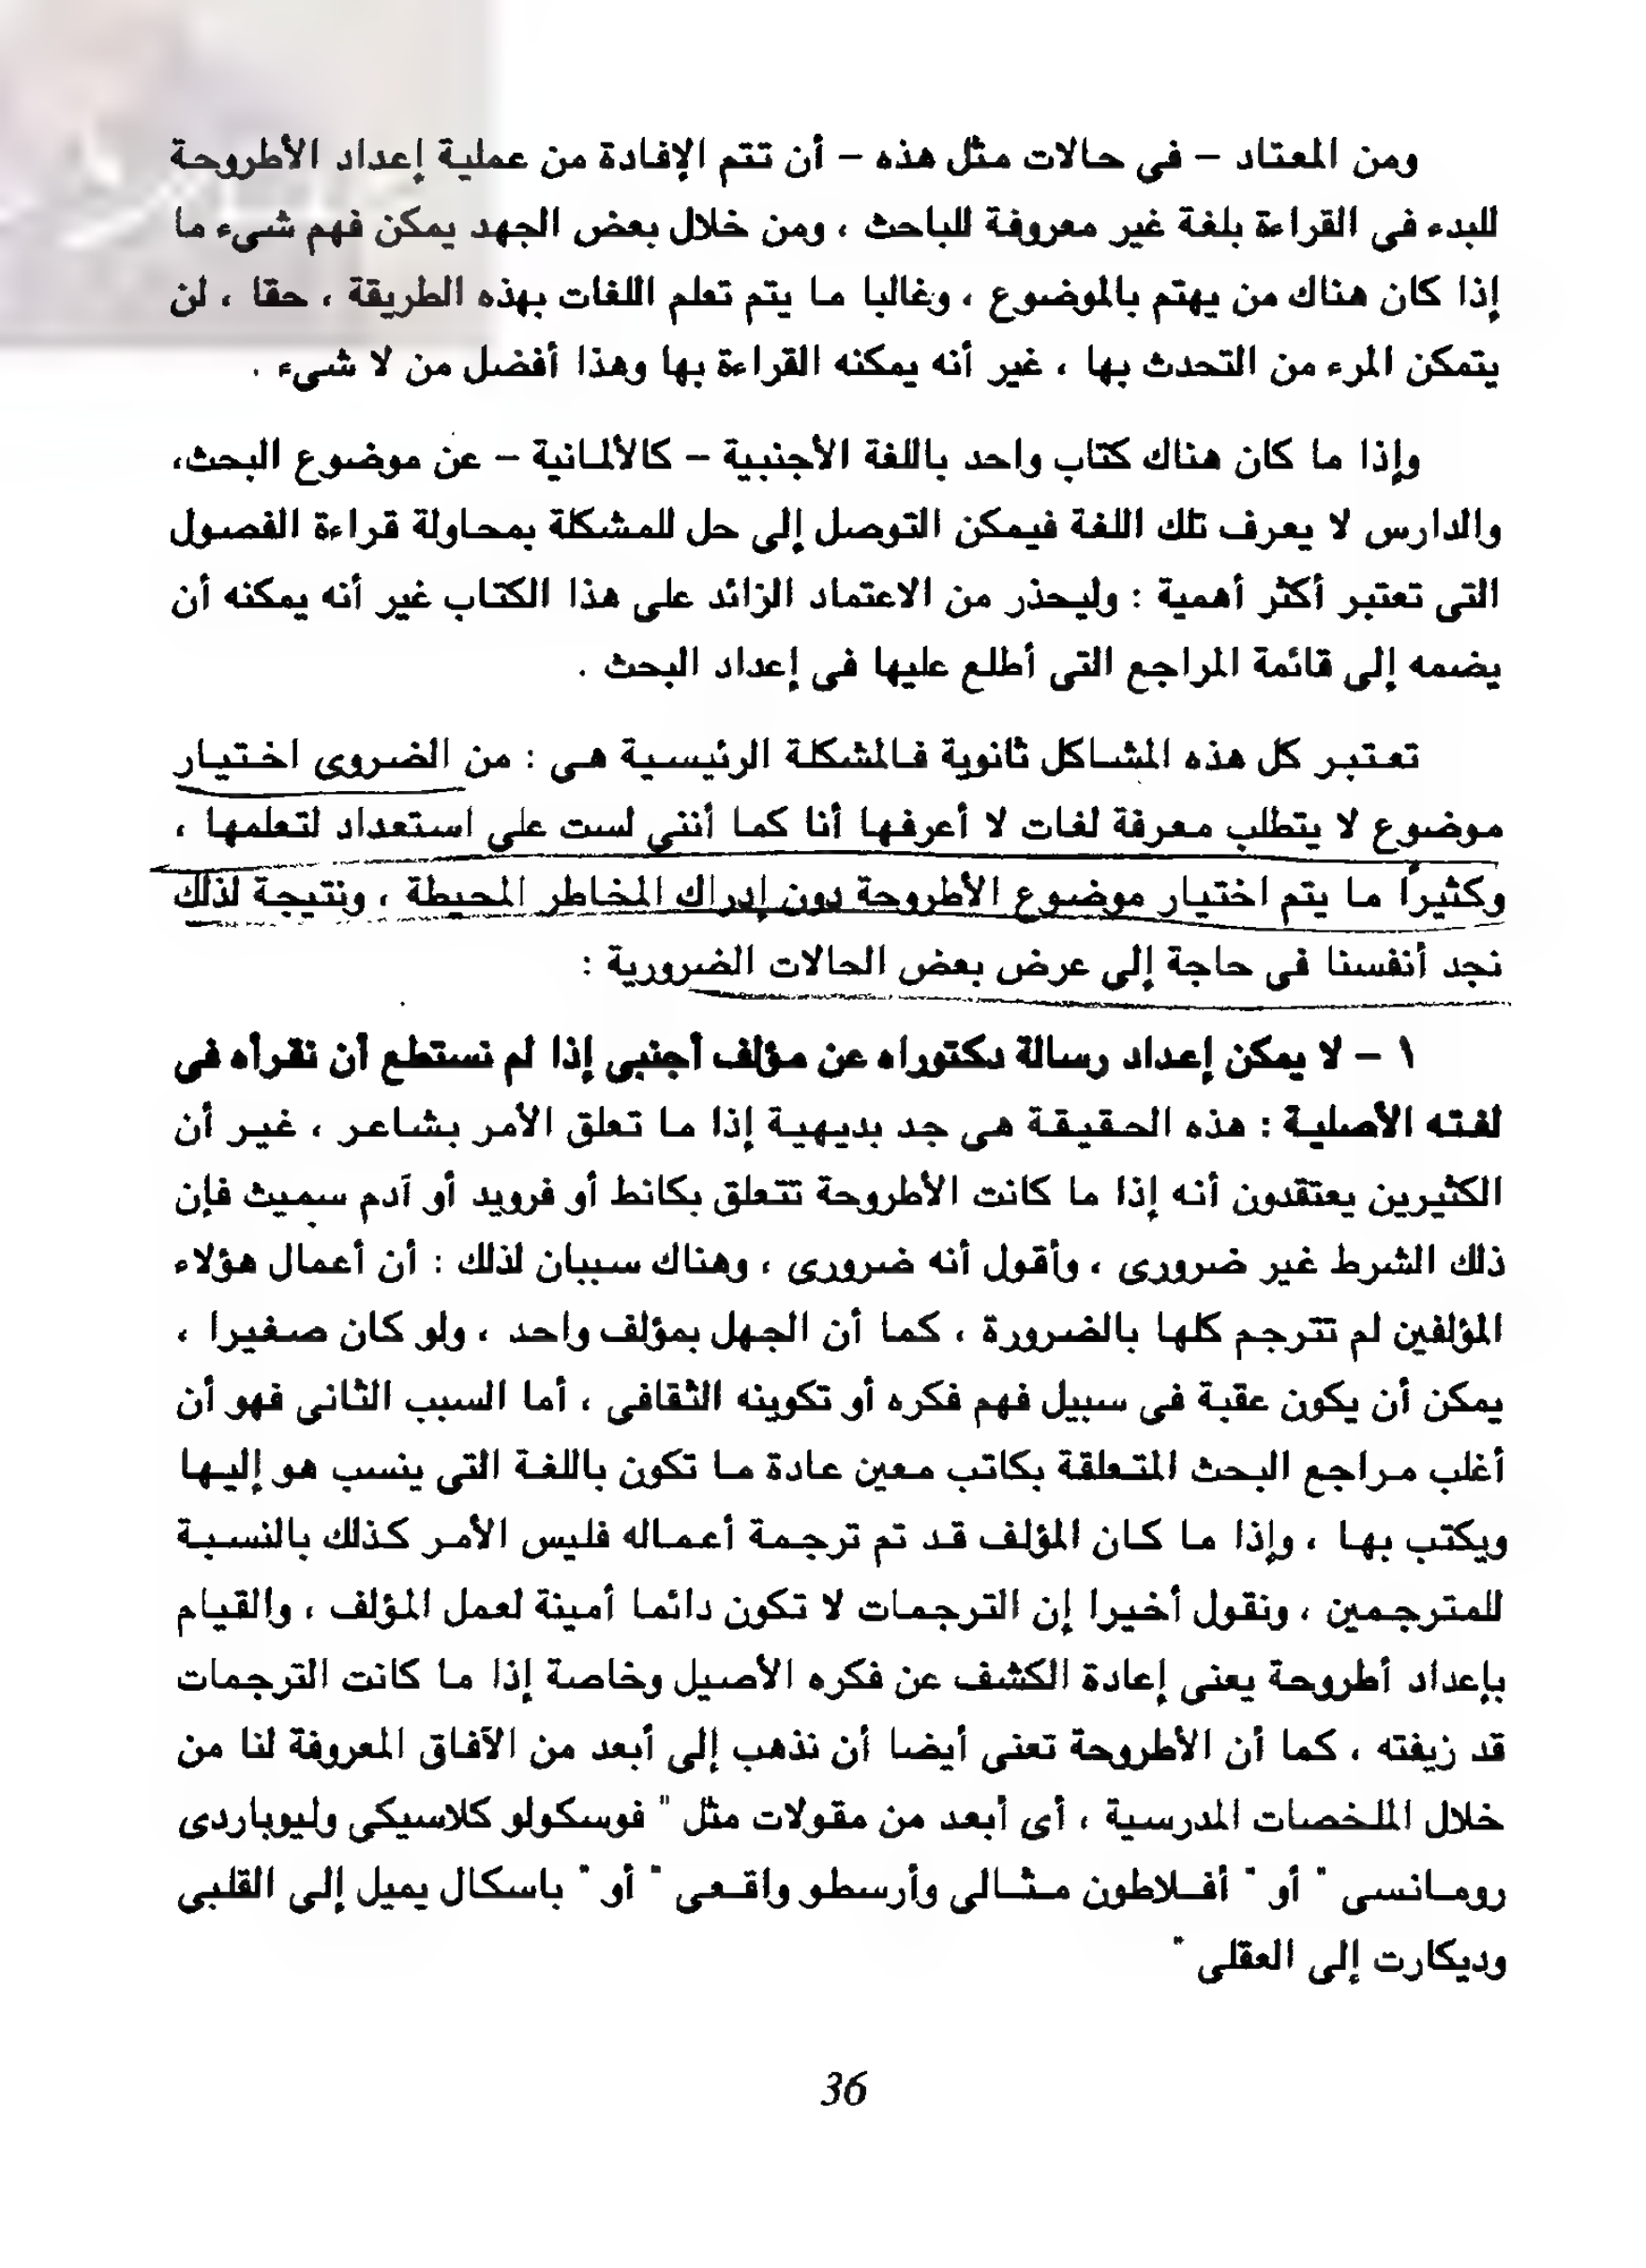 ومن المعتاد – فى حالات مثل هذه – أن تتم الإفادة من عملية إعداد الأطروحة
للبدء فى القراءة بلغة غير معروفة للباحث ، ومن خلال بعض الجهد يمكن فهم شىء ما
إذا كان هناك من يهتم بالموضوع ، وغالبا ما يتم تعلم اللغات بهذه الطريقة ، حقا ، لن
يتمكن المرء من التحدث بها ، غير أنه يمكنه القراءة بها وهذا أفضل من لا شىء .
وإذا ما كان هناك كتاب واحد باللغة الأجنبية – كالألمانية – عن موضوع البحث،
والدارس لا يعرف تلك اللغة فيمكن التوصل إلى حل للمشكلة بمحاولة قراءة الفصول
التى تعتبر أكثر أهمية : وليحذر من الاعتماد الزائد على هذا الكتاب غير أنه يمكنه أن
يضمه إلى قائمة المراجع التى أطلع عليها فى إعداد البحث .
تعتبر كل هذه المشاكل ثانوية فالمشكلة الرئيسية هى : من الضروى اختيار
موضوع لا يتطلب معرفة لغات لا أعرفها أنا كما أننى لست على استعداد لتعلمها ،
وكثيراً ما يتم اختيار موضوع الأطروحة دون إدراك المخاطر المحيطة ، ونتيجة لذلك
نجد أنفسنا فى حاجة إلى عرض بعض الحالات الضرورية :
١ – لا يمكن إعداد رسالة دكتوراه عن مؤلف أجنبى إذا لم نستطع أن نقرأه فى
لغته الأصلية : هذه الحقيقة هى جد بديهية إذا ما تعلق الأمر بشاعر ، غير أن
الكثيرين يعتقدون أنه إذا ما كانت الأطروحة تتعلق بكانط أو فرويد أو آدم سميث فإن
ذلك الشرط غير ضرورى ، وأقول أنه ضرورى ، وهناك سببان لذلك : أن أعمال هؤلاء
المؤلفين لم تترجم كلها بالضرورة ، كما أن الجهل بمؤلف واحد ، ولو كان صغيرا ،
يمكن أن يكون عقبة فى سبيل فهم فكره أو تكوينه الثقافى ، أما السبب الثانى فهو أن
أغلب مراجع البحث المتعلقة بكاتب معين عادة ما تكون باللغة التى ينسب هو إليها
ويكتب بها ، وإذا ما كان المؤلف قد تم ترجمة أعماله فليس الأمر كذلك بالنسبة
للمترجمين ، ونقول أخيرا إن الترجمات لا تكون دائما أمينة لعمل المؤلف ، والقيام
بإعداد أطروحة يعنى إعادة الكشف عن فكره الأصيل وخاصة إذا ما كانت الترجمات
قد زيفته ، كما أن الأطروحة تعنى أيضا أن نذهب إلى أبعد من الآفاق المعروفة لنا من
خلال الملخصات المدرسية ، أى أبعد من مقولات مثل " فوسكولو كلاسيكى وليوباردى
رومانسى " أو " أفلاطون مثالى وأرسطو واقعى " أو " باسكال يميل إلى القلبى
وديكارت إلى العقلى "
36